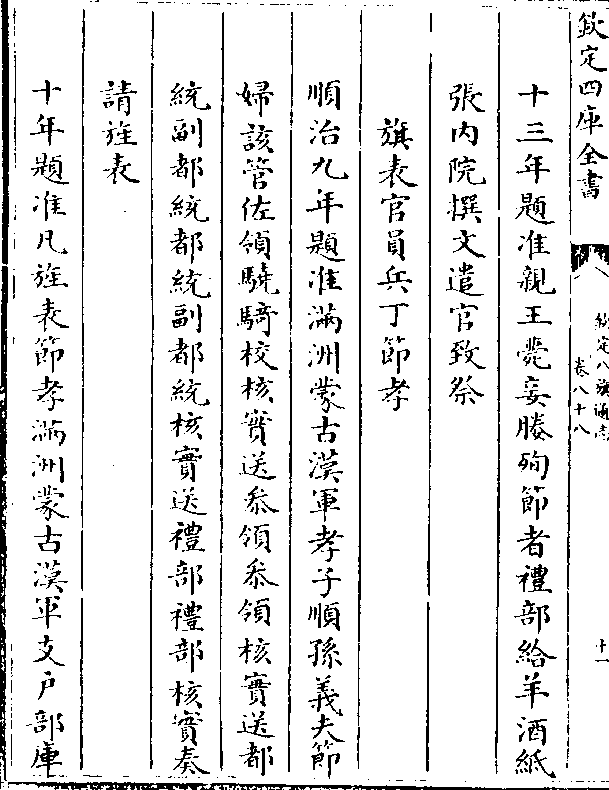 欽定四庫全書
欽定八旗通志
卷八十八
十一
十三年題准親王薨妾媵殉節者禮部給羊酒紙
張内院撰文遣官致祭
旗表官員兵丁節孝
順治九年題准滿洲蒙古漢軍孝子順孫義夫節
婦該管佐領驍騎校核實送叅領叅領核實送都
統副都統都統副都統核實送禮部禮部核實奏
請旌表
十年題准凡旌表節孝滿洲蒙古漢軍支戶部庫